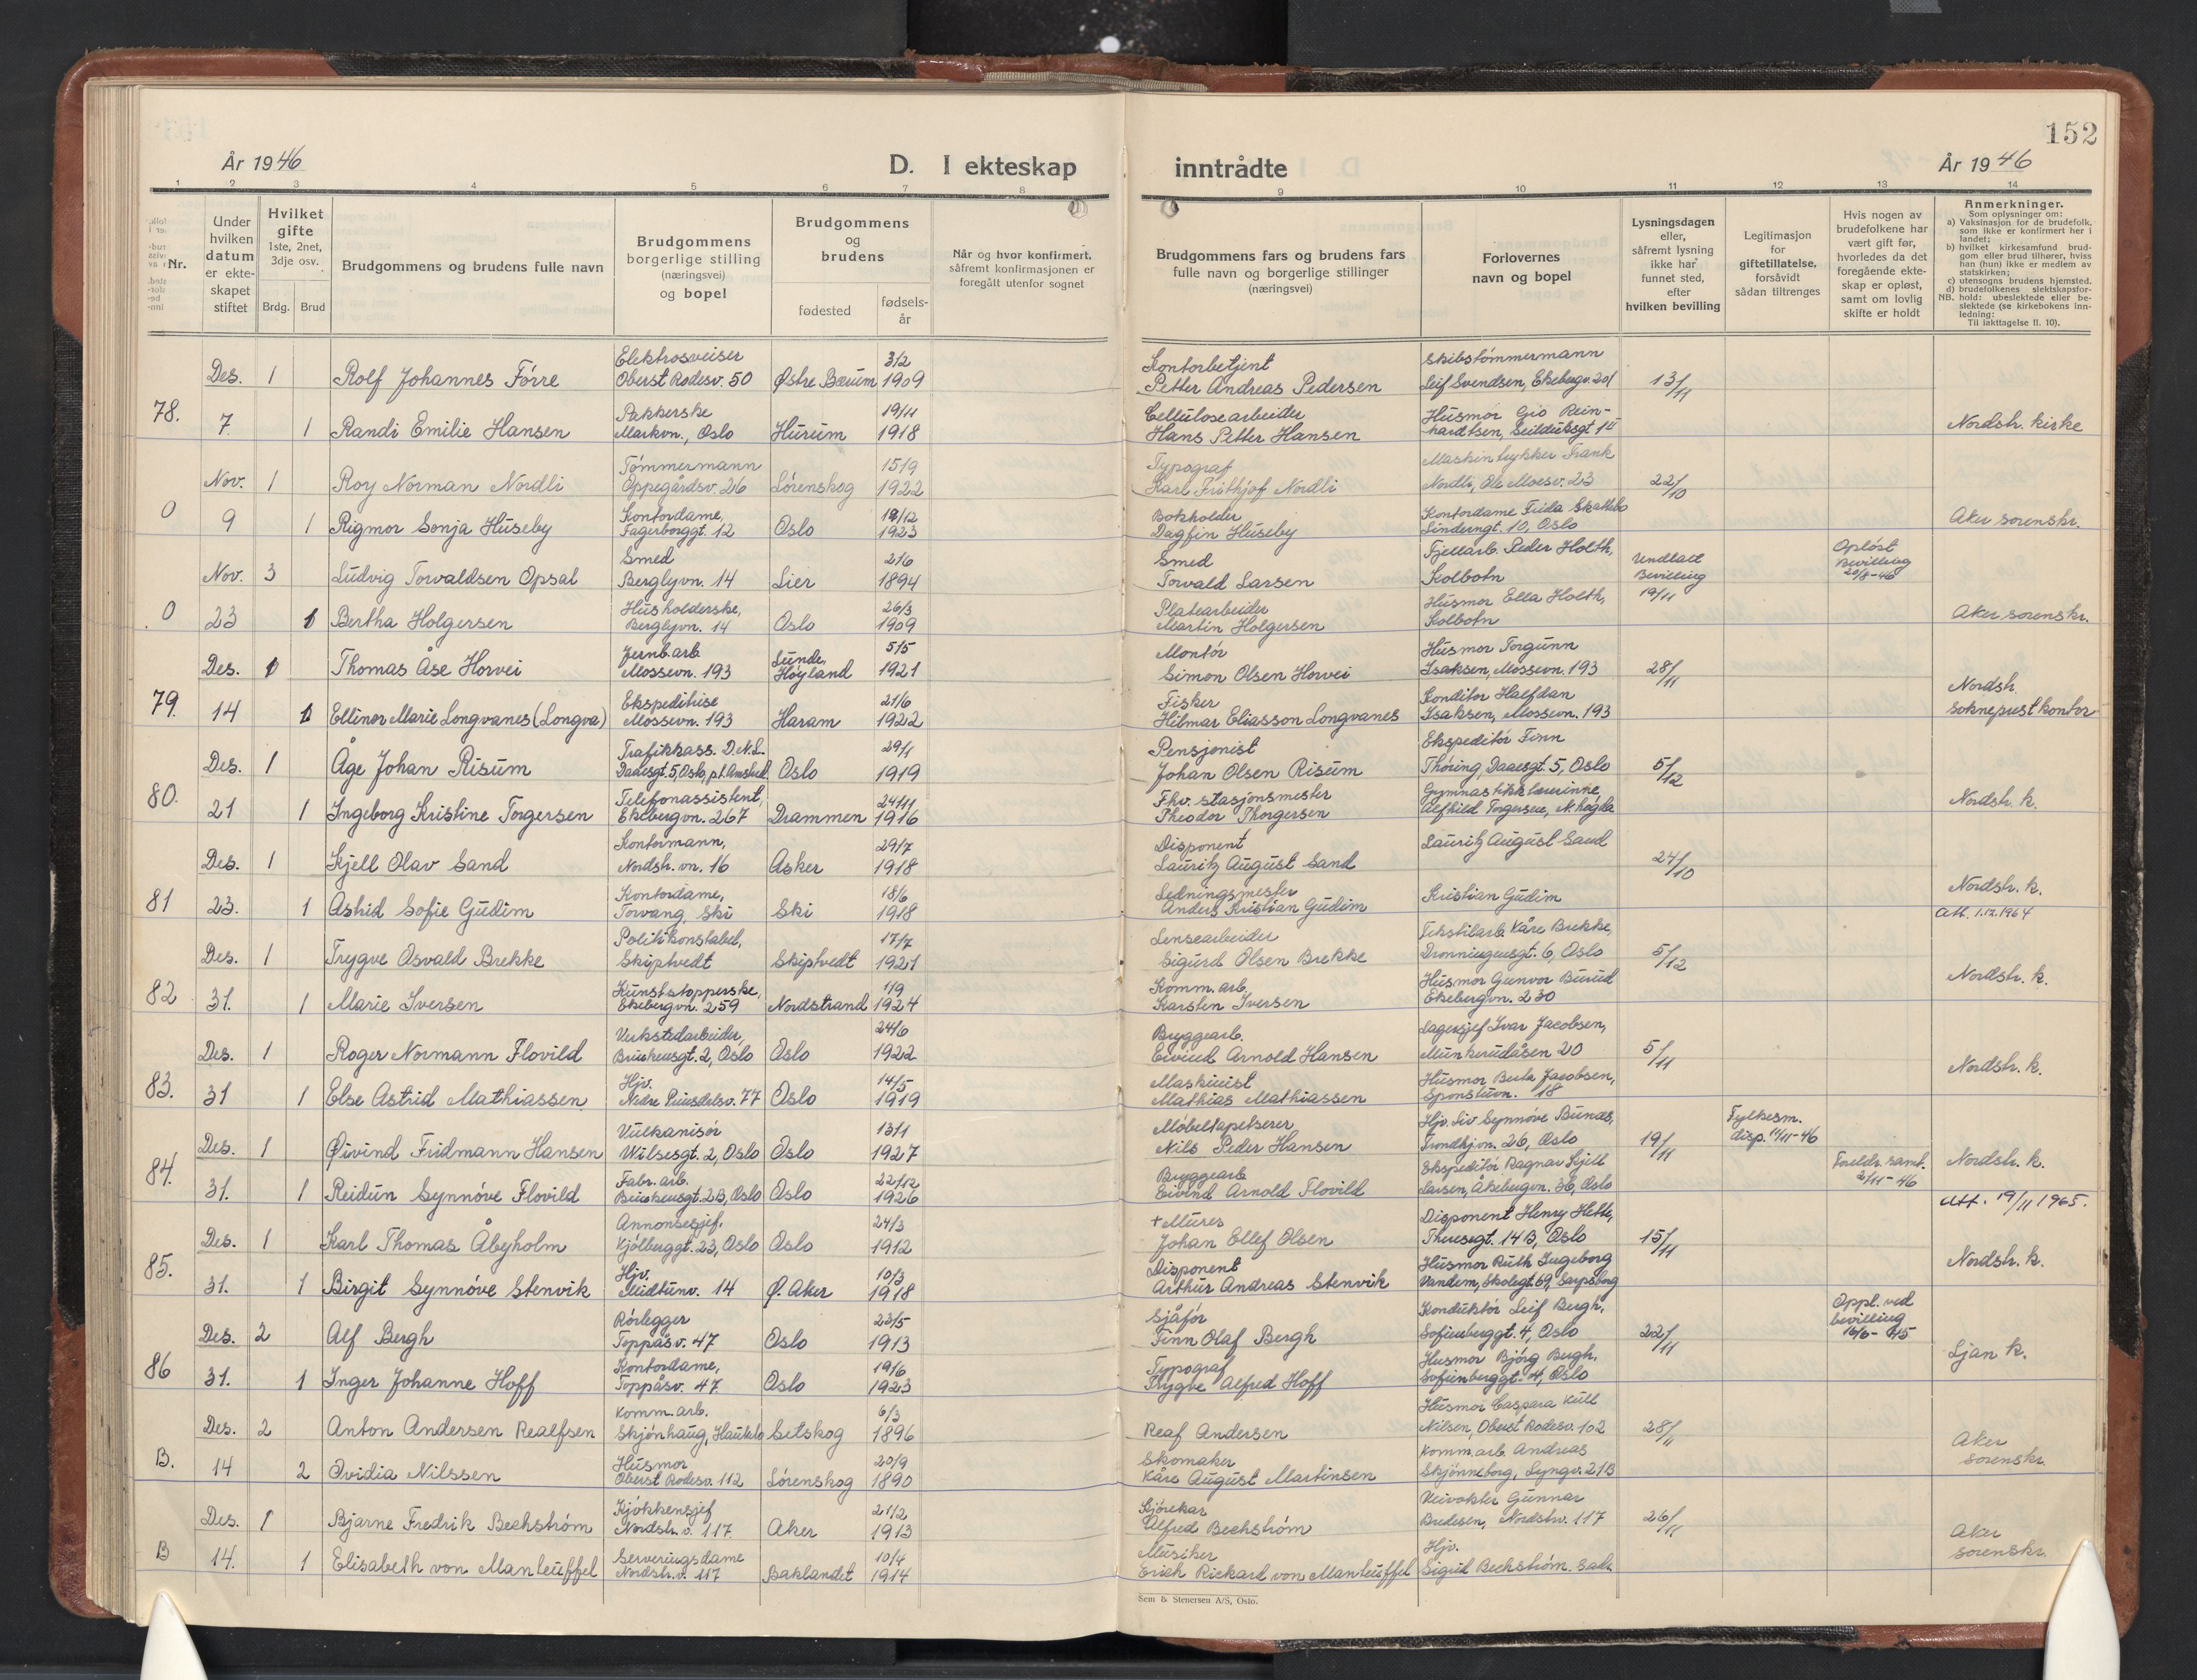 152
År 1946
D. I ekteskap inntrådte
År 1946
1 2 3 4 5 6 7 8 9 10 11 12 13 14
Nr.
Under hvilken datum er ekteskapet stiftet
Hvilket gifte 1ste, 2net, 3dje osv.
Brdg. Brud
Brudgommens og brudens fulle navn
Brudgommens borgerlige stilling (næringsvei) og bopel
Brudgommens og brudens
fødested
fødsels-år
Når og hvor konfirmert, såfremt konfirmasjonen er foregått utenfor sognet
Brudgommens fars og brudens fars fulle navn og borgerlige stillinger (næringsvei)
Forlovernes navn og bopel
Lysningsdagen eller, såfremt lysning ikke har funnet sted, efter hvilken bevilling
Legitimasjon for giftetillatelse, forsåvidt sådan tiltrenges
Hvis nogen av brudefolkene har vært gift før, hvorledes da det foregående ekteskap er opløst, samt om lovlig skifte er holdt
Anmerkninger.
Som oplysninger om:
a) Vaksinasjon for de brudefolk, som ikke er konfirmert her i landet;
b) hvilket kirkesamfund brudgom eller brud tilhører, hviss han (hun) ikke er medlem av statskirken;
c) utensogns brudens hjemsted.
d) brudefolkenes slektskapsforhold: ubeslektede eller beslektede (se kirkebokens innledning:
NB.
Til iakttagelse II. 10).
78. Des. 1 Rolf Johannes Förre Elektrosveiser Oberst Rodesv. 50 Østre Bærum 3/2 1909 Kontorbetjent Petter Andreas Pedersen Skibstömmermann Leif Svendsen, Ekebergv. 201 13/11
7. 1 Randi Emilie Hansen Pakkerske Markvn., Oslo Hurum 19/11 1918 Cellulosearbeider Hans Petter Hansen Husmor Gio Rein-hardtsen, Seilduksgt 14 Nordstr. kirke
0 Nov. 1 Roy Norman Nordli Tömmermann Oppegårdsv. 26 Lörenskog 15/9 1922 Typograf Karl Frithjof Nordli Maskintrykker Frank Nordli, Ole Moesv. 23 22/10
9 1 Rigmor Sonja Huseby Kontordame, Fagerborggt. 12 Oslo 1923 Bokholder Dagfin Huseby Kontordame Frida Linderngt. 10, Oslo Aker sorenskr.
0 Nov. 3 Ludvig Torvaldsen Opsal Smed Berglyvn. 14 Lier 2/6 1894 Smed Torvald Larsen Fjellarb. Peder Holth, Kolbotn Undtatt Bevilling 19/11 Oplöst Bevilling 20/8-46
23 1 Bertha Holgersen Husholderske, Berglyvn. 14 Oslo 26/3 1909 Platearbeider Martin Holgersen Husmor Ella Holth, Kolbotn Aker sorenskr.
79. Des. 1 Thomas Åse Horvei Jernb.arb. Mossevn. 193 Sunde, Höyland 5/5 1921 Montör Simon Olsen Horvei Husmor Torgunn Isaksen, Mossevn. 193 28/11
14 1 Ellinor Marie Longvanes (Longva) Ekspeditrise Mossevn. 193 Haram 21/6 1922 Fisker Hilmar Eliasson Longvanes Konditor Halfdan Isaksen, Mossevn. 193 Nordstr. sokneprestkontor
80. Des. 1 Åge Johan Risum Trafikkass. D.N.L. Daaesgt. 5, Oslo, p.t. Amsterd. Oslo 29/1 1919 Pensjonist Johan Olsen Risum Ekspeditör Finn Thöring, Daaesgt. 5, Oslo 5/12
21 1 Ingeborg Kristine Torgersen Telefonassistent, Ekebergvn. 267 Drammen 24/11 1916 Fhv. stasjonsmester Theodor Thorgersen Gymnastikklærerinne, Alfhild Torgersen, Nordstr. k.
81 Des. 1 Kjell Olav Sand Kontormann, Nordstr. vn. 16 Asker 29/7 1918 Disponent Lauritz August Sand Lauritz August Sand 24/10
23. 1 Astrid Sofie Gudim Kontordame, Torvang, Ski Ski 18/6 1918 Ledningsmester Anders Kristian Gudim Kristian Gudim Nordstr. k. Att. 1.12.1964
82 Des. 1 Trygve Osvald Brekke Politikonstabel, Skiptvedt Skiptvedt 17/7 1921 Lensearbeider Sigurd Olsen Brekke Tekstilarb. Kåre Brekke, Dronningensgt. 6, Oslo 5/12
31. 1 Marie Iversen Kunststopperske, Ekebergvn. 259 Nordstrand 1/9 1924 Komm.arb. Karsten Iversen Husmor Gunvor Burud Ekebergvn. 230 Nordstr. k.
83. Des. 1 Roger Normann Flovild Verkstedarbeider, Brinkensgt. 2, Oslo Oslo 24/6 1922 Bryggearb. Eivind Arnold Hansen Lagersjef Ivar Jacobsen, Munkerudåsen 20 5/11
31 1 Else Astrid Mathiassen Hjv. Nedre Prinsdalsv. 77 Oslo 14/5 1919 Maskinist Mathias Mathiassen Husmor Berta Jacobsen, Sponstuvn. 18 Nordstr. k.
84. Des. 1 Øivind Fridmann Hansen Vulkanisör Wilsesgt. 2, Oslo Oslo 13/1 1927 Möbeltapetserer Nils Peder Hansen Hjv. Liv Synnöve Bunæs, Trondhj.vn. 26, Oslo 19/11 Fylkesm. disp. 11/11-46
31. 1 Reidun Synnöve Flovild Fabr. arb. Brinkensgt. 2B, Oslo Oslo 22/12 1926 Bryggearb. Eivind Arnold Flovild Ekspeditör Ragnar Kjell Larsen, Åkebergvn. 36, Oslo Foreldr. samt. 2/11-46 Nordstr. k. Att. 19/11 1965.
85. Des. 1 Karl Thomas Åbyholm Annonsesjef, Kjölberggt. 23, Oslo Oslo 24/3 1912 + Murer Johan Ellef Olsen Disponent Henry Hette, Theresegt. 14B, Oslo 15/11
31. 1 Birgit Synnöve Stenvik Hjv. Midtunv. 14 Ø. Aker 10/3 1918 Disponent Arthur Andreas Stenvik Husmor Ruth Ingeborg Vandem, Skolegt. 69, Sarpsborg Nordstr. k.
86 Des. 2 Alf Bergh Rörlegger Toppåsv. 47 Oslo 22/5 1913 Sjåför Finn Olaf Bergh Konduktör Leif Bergh, Sofienberggt. 4, Oslo 22/11 Oppl. ved bevilling 16/6-45
31. 1 Inger Johanne Hoff Kontordame, Toppåsv. 47 Oslo 19/6 1923 Typograf Trygve Alfred Hoff Husmor Björg Bergh, Sofienberggt. 4, Oslo Ljan k.
B. Des. 2 Anton Andersen Realfsen Komm.arb. Skjönhaug, Hauketo Setskog 6/3 1896 Reaf Andersen Husmor Caspara Kull Nilsen, Oberst Rodesv. 102 28/11
14 2 Ovidia Nilssen Husmor Oberst Rodesv. 112 Lörenskog 20/9 1890 Skomaker Kåre August Martinsen Komm.arb. Andreas Skjönneborg, Lyngv. 21B Aker sorenskr.
B Des. 1 Bjarne Fredrik Bechström Kjökkensjef Nordstr. v. 117 Aker 21/2 1913 Kjörekar Alfred Bechström Veivokter Gunnar Bredesen, Nordstrv. 117 26/11
14. 1 Elisabeth von Manteuffel Serveringsdame Nordstr. v. 117 Baklandet 10/4 1914 Musiker Erich Rickard von Manteuffel Hjv. Sigrid Bechström. Aker sorenskr.
Sem & Stenersen A/S, Oslo.